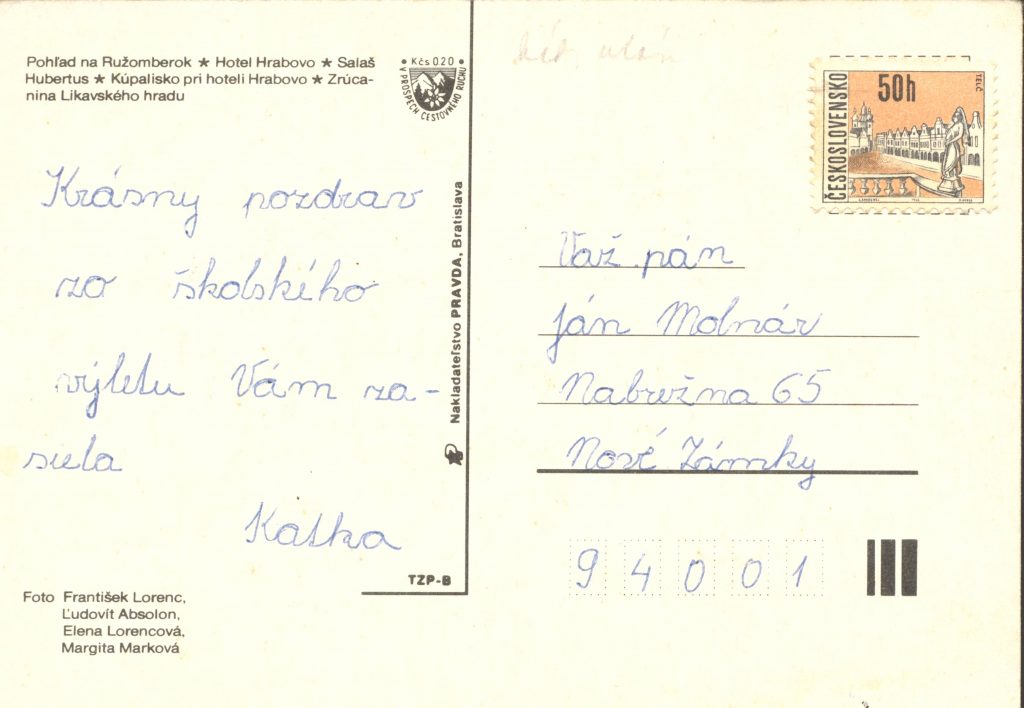 Pohľad na Ružomberok ★ Hotel Hrabovo ★ Salaš
Hubertus ★ Kúpalisko pri hoteli Hrabovo ★ Zrúca-
nina Likavského hradu
Kčs 0.20
V PROSPECH CESTOVNÉHO RUCHU
Krásny pozdrav
zo školského
výletu Vám za-
siela
Katka
Foto František Lorenc,
Ľudovít Absolon,
Elena Lorencová,
Margita Marková
TZP-B
Nakladateľstvo PRAVDA, Bratislava
ČESKOSLOVENSKO
50h
TELČ
Váž. pán
Ján Molnár
Nabrežna 65
Nové Zámky
94001